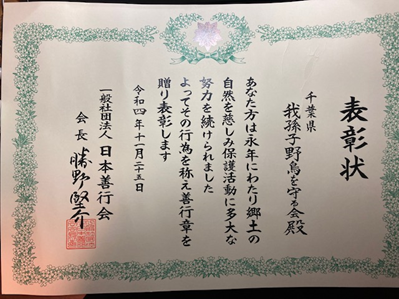 表彰状
千葉県
我孫子野鳥を守る会殿
あなた方は永年にわたり郷土の
自然を慈しみ保護活動に多大な
努力を続けられました
よってその行為を称え善行章を
贈り表彰します
令和四年十一月二十五日
一般社団法人日本善行会
会長 勝野堅介